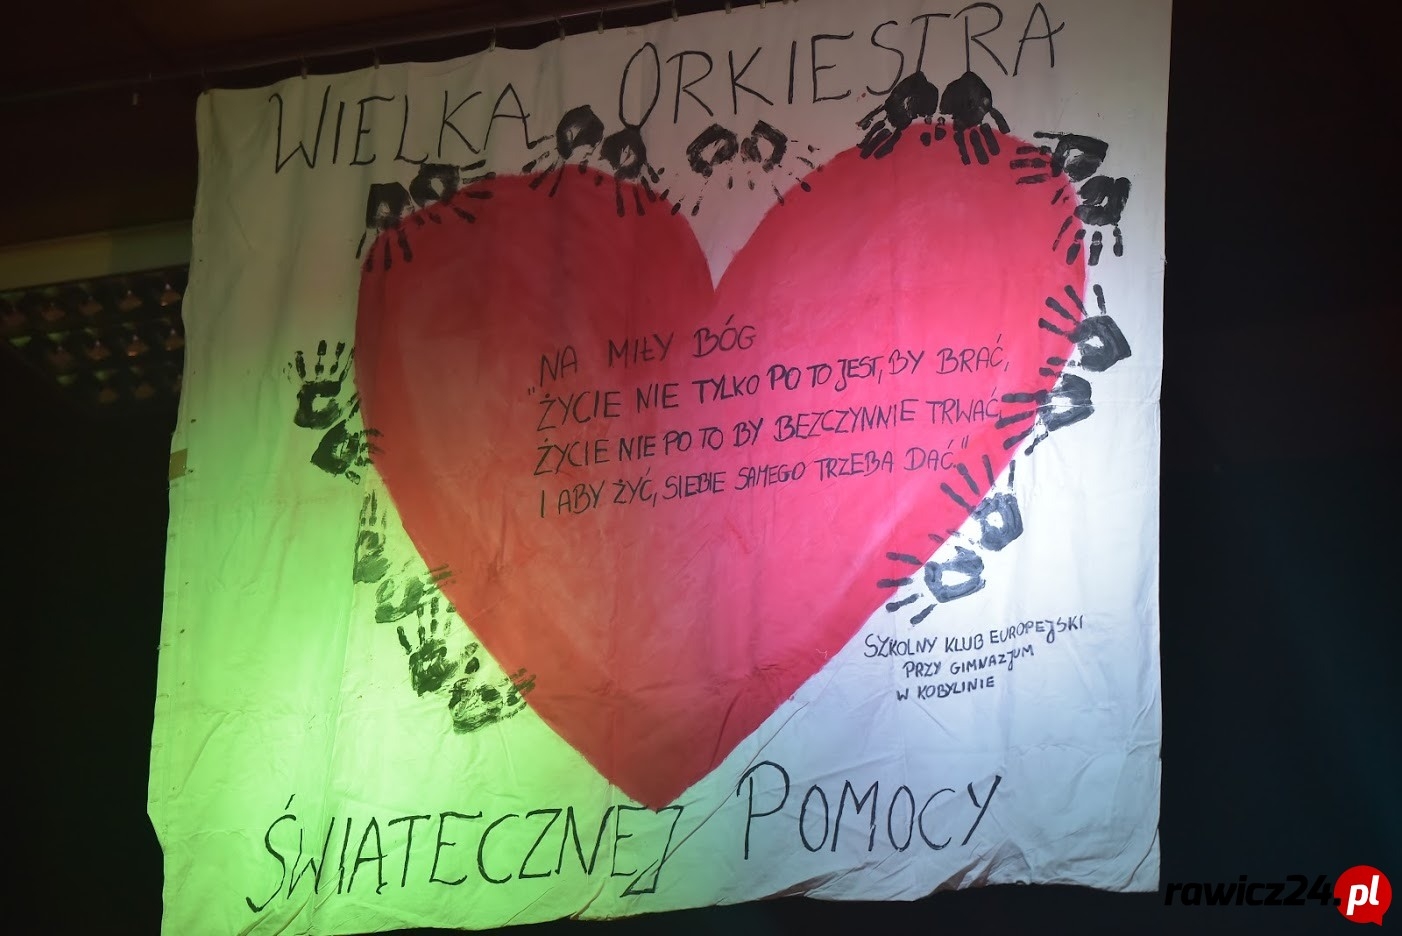 WIELKA ORKIESTRA
NA MIŁY BÓG
"ŻYCIE NIE TYLKO PO TO JEST, BY BRAĆ,
ŻYCIE NIE PO TO BY BEZCZYNNIE TRWAĆ,
I ABY ŻYĆ, SIEBIE SAMEGO TRZEBA DAĆ."
SZKOLNY KLUB EUROPEJSKI
PRZY GIMNAZJUM
W KOBYLINIE
ŚWIĄTECZNEJ POMOCY
rawicz24.pl